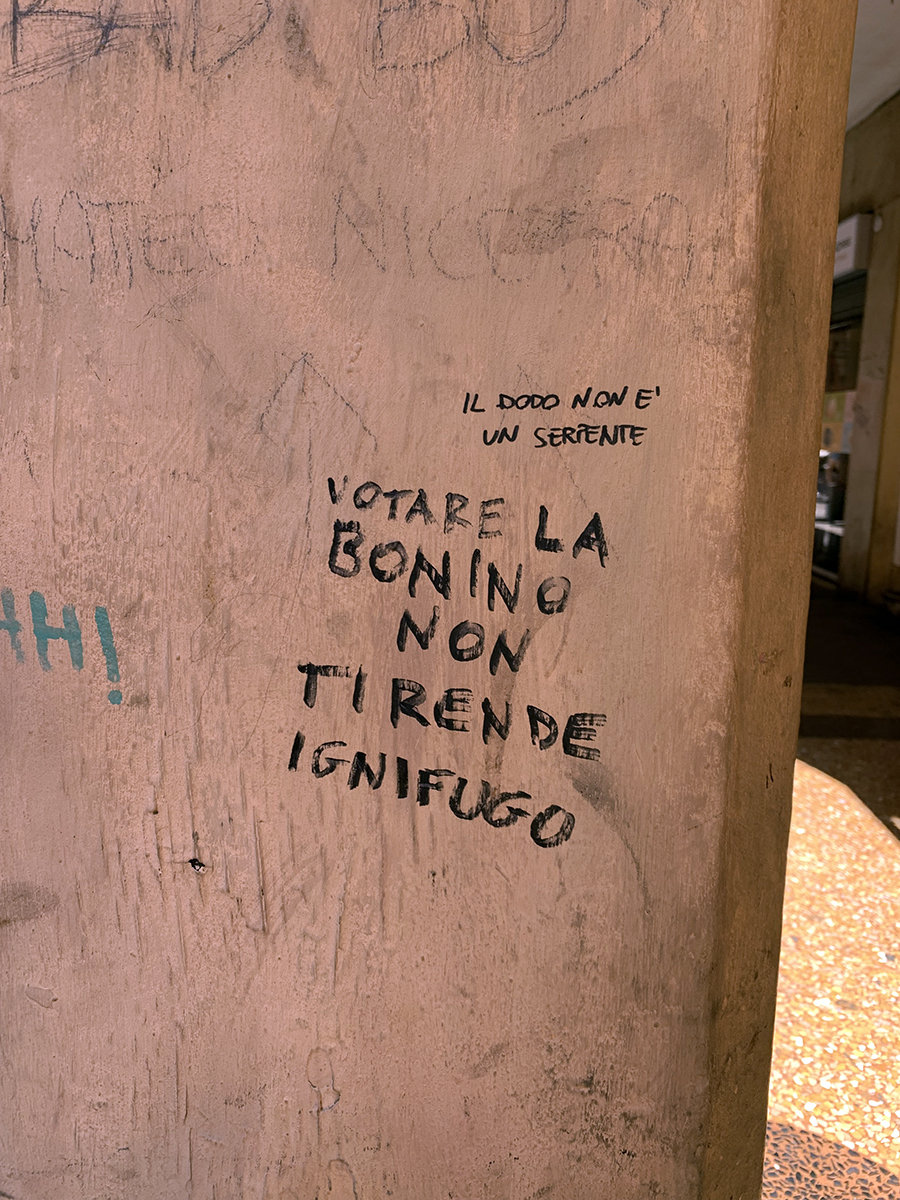 NICOLETTA
IL DODO NON E'
UN SERPENTE
VOTARE LA
BONINO
NON
TI RENDE
IGNIFUGO
HH!